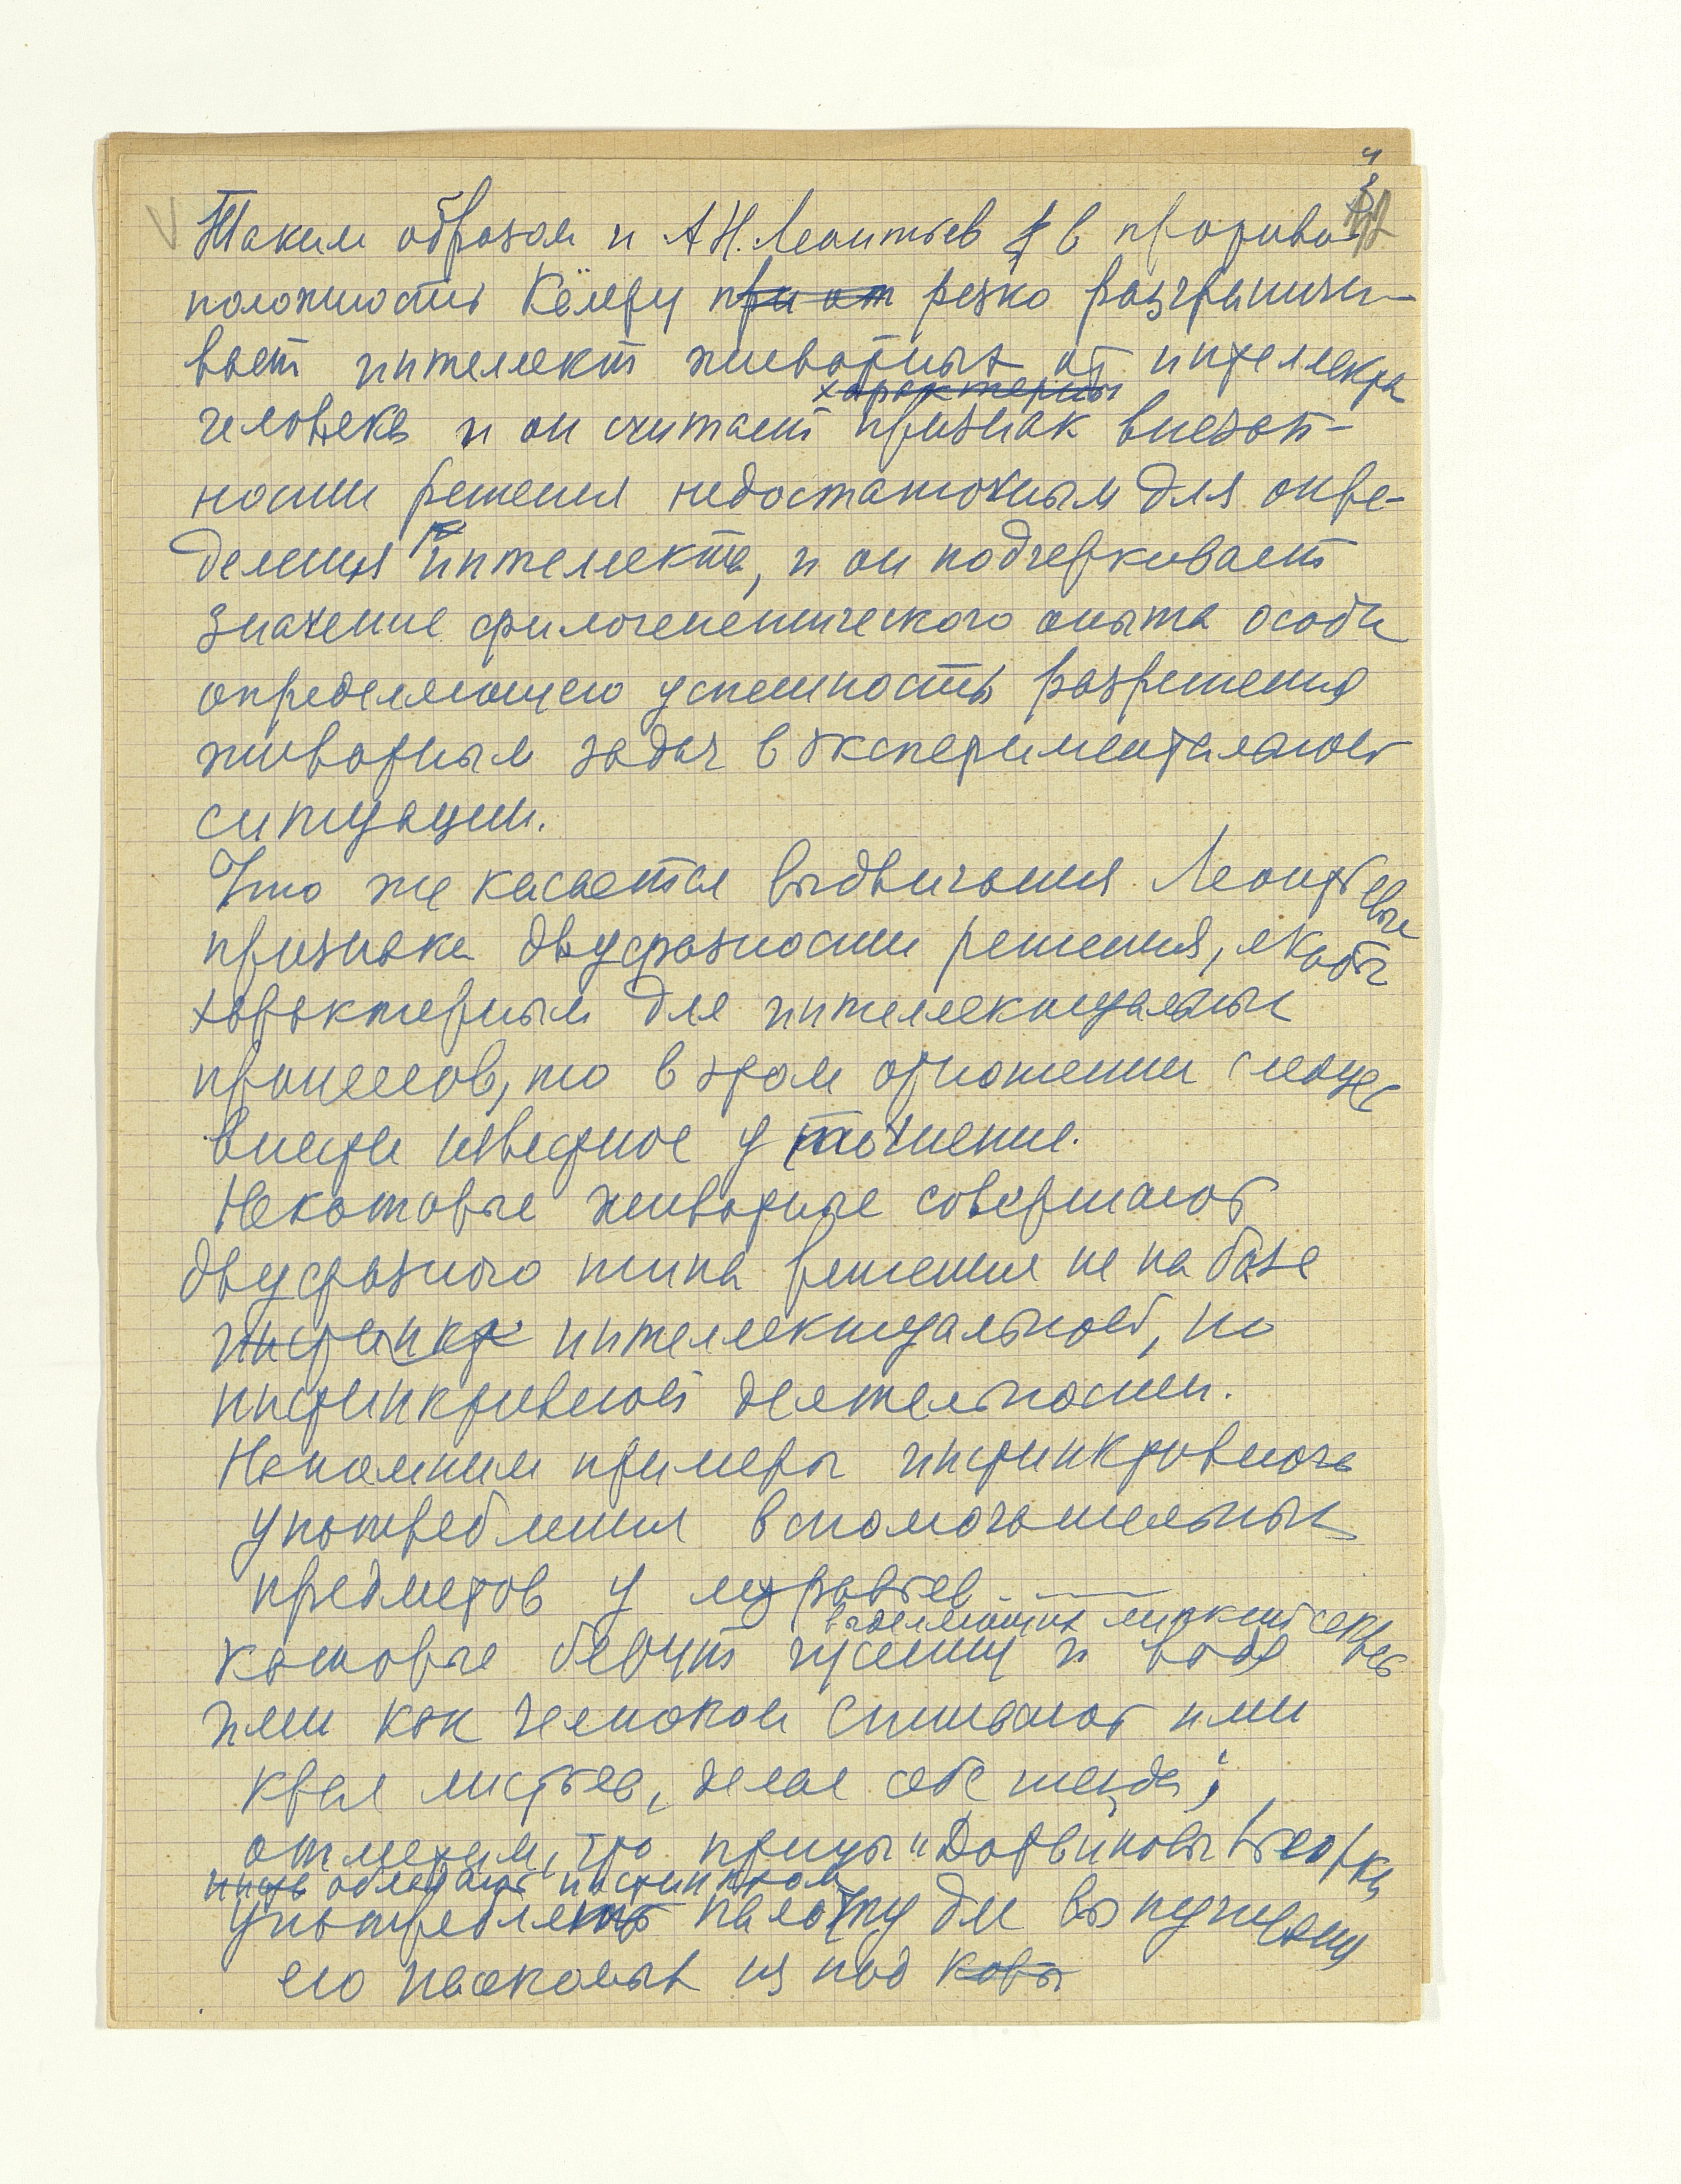 Таким образом и А.Н. Леонтьев в противо-
положность Кёлеру при от резко разграничи-
вает интеллект животных от интеллекта
характерны
человека и он считает признак внезап-
ности решения недостаточным для опре-
деления интеллекта, и он подчеркивает
значение филогенетического опыта особи
определяющего успешность разрешения
животным задач в экспериментальной
ситуации.
Что же касается выдвигания Леонтьевым
признака двуфазности решения, якобы
характерным для интеллектуальных
процессов, то в этом отношении следует
внести известное уточнение.
Некоторые животные совершают
двуфазного типа решение не на базе
инстинкт интеллектуальной, но
инстинктивной деятельности.
Напомним примеры инстинктивного
употребления вспомогательных
предметов у муравьев
выделяющих липкий секрет
которые берут гусениц и водя
ими как челноком сшивают ими
края листьев, делая себе гнезда;
отметим, что птицы "Дарвиновы вьюрки
обладают инстинктом
употреблять палочку для выпугиван
его насекомых из под коры